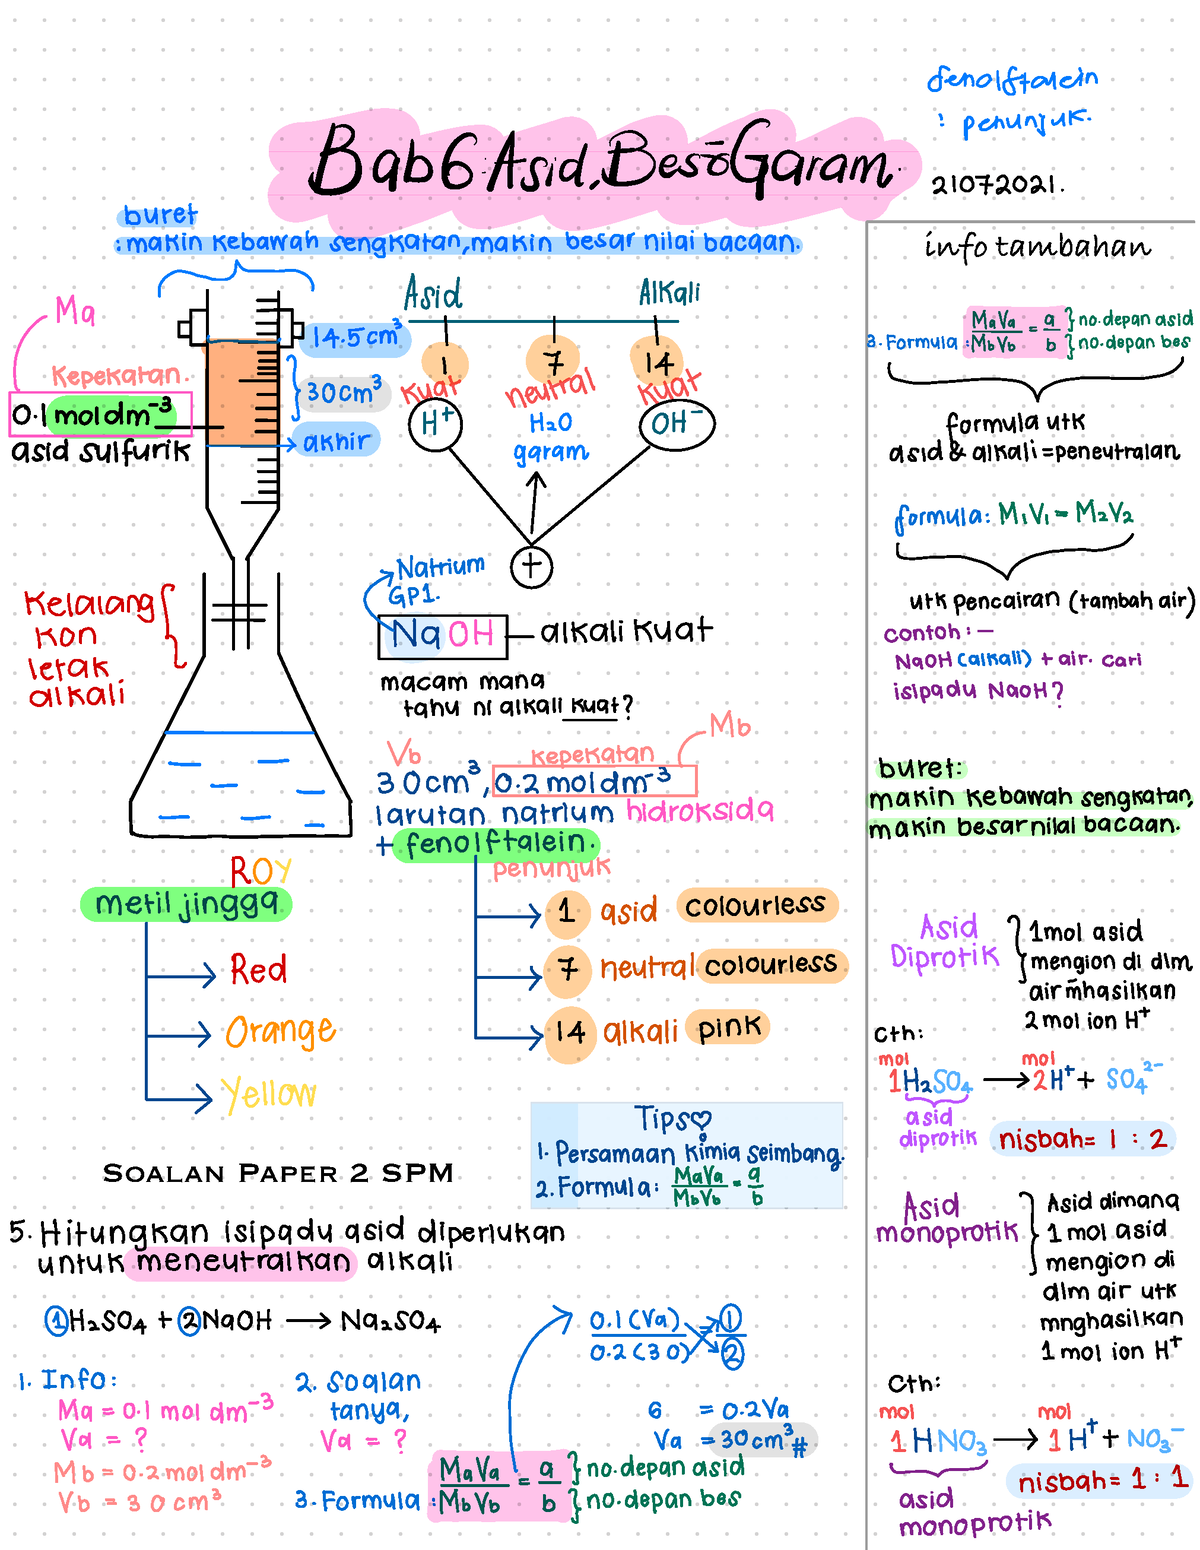 fenolftalein
: penunjuk.
21072021.
Bab 6 Asid, Bes & Garam.
buret
: makin kebawah sengkatan, makin besar nilai bacaan.
Ma
Kepekatan.
0.1 moldm⁻³
asid sulfurik
14.5 cm³
30 cm³
akhir
Asid
Alkali
1
7
14
kuat
neutral
kuat
H⁺
H₂O
garam
OH⁻
+
Kelalang
kon
letak
alkali
Natrium
GP1.
NaOH — alkali kuat
macam mana
tahu ni alkali kuat?
Vb
Kepekatan
Mb
30cm³, 0.2 moldm⁻³
larutan natrium hidroksida
+ fenolftalein.
penunjuk
1 asid colourless
7 neutral colourless
14 alkali pink
ROY
metil jingga
Red
Orange
Yellow
Tips
1. Persamaan kimia seimbang.
2. Formula: MaVa/MbVb = a/b
SOALAN PAPER 2 SPM
5. Hitungkan isipadu asid diperlukan
untuk meneutralkan alkali
①H₂SO₄ + ②NaOH → Na₂SO₄
1. Info:
Ma = 0.1 mol dm⁻³
Va = ?
Mb = 0.2 mol dm⁻³
Vb = 30 cm³
2. Soalan
tanya,
Va = ?
3. Formula : MaVa/MbVb = a/b } no. depan asid
} no. depan bes
0.1 (Va)/0.2 (30) = ①/②
6 = 0.2 Va
Va = 30 cm³ #
info tambahan
3. Formula : MaVa/MbVb = a/b } no. depan asid
} no. depan bes
formula utk
asid & alkali = peneutralan
formula: M₁V₁ = M₂V₂
utk pencairan (tambah air)
contoh : –
NaOH (alkali) + air. cari
isipadu NaOH?
buret:
makin kebawah sengkatan,
makin besar nilai bacaan.
Asid
Diprotik
1 mol asid
mengion di dlm
air m̄hasilkan
2 mol ion H⁺
Cth:
mol
mol
1H₂SO₄ → 2H⁺ + SO₄²⁻
asid
diprotik
nisbah = 1 : 2
Asid
monoprotik
Asid dimana
1 mol asid
mengion di
dlm air utk
mnghasilkan
1 mol ion H⁺
Cth:
mol
mol
1 HNO₃ → 1 H⁺ + NO₃⁻
nisbah = 1 : 1
asid
monoprotik